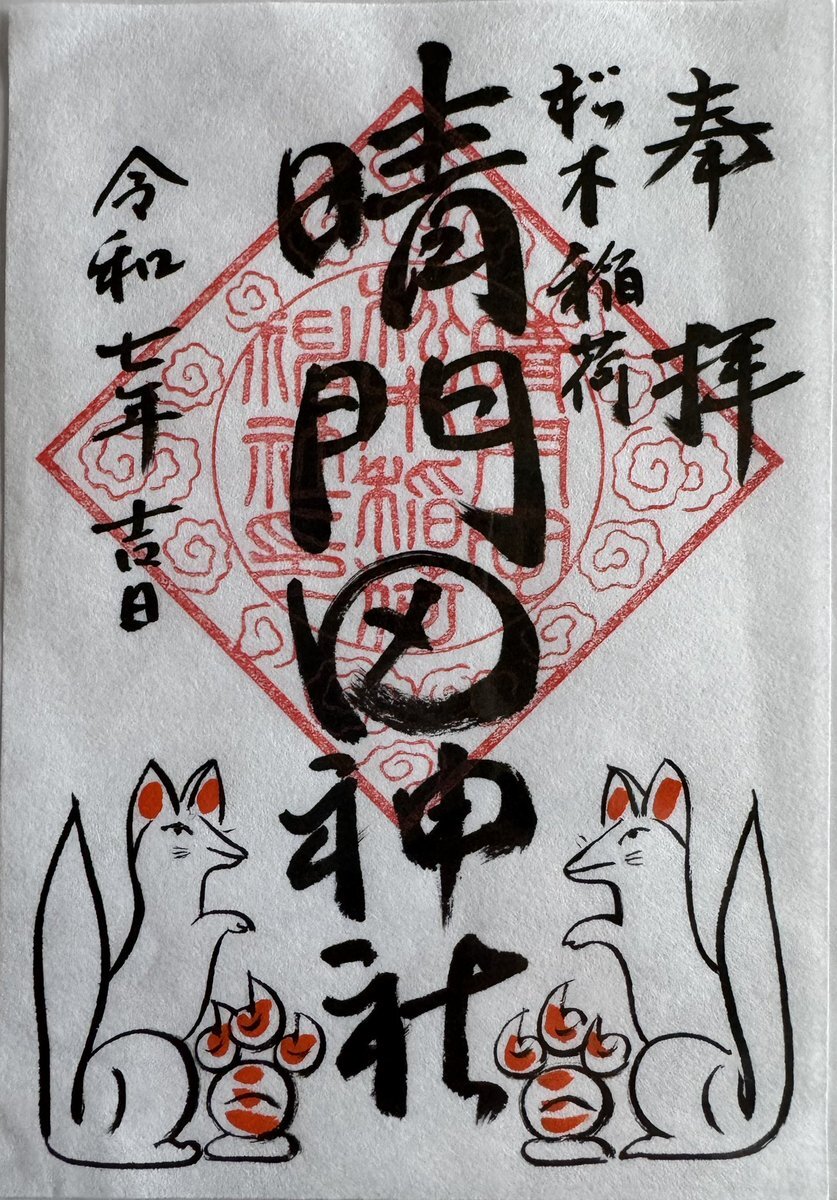 奉拝
松木稲荷
晴門田神社
令和七年 吉日
晴門田
松木稲荷